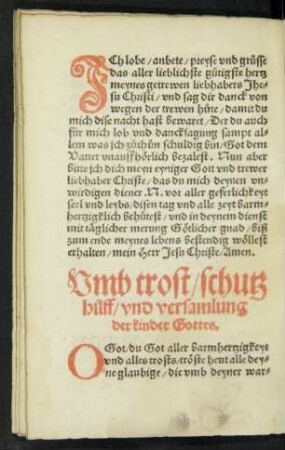 ICh lobe / anbete / preyse vnd grüsse
das aller lieblichste gütigste hertz
meynes getrewen liebhabers Jhe-
su Christi / vnd sag dir danck von
wegen der trewen hüte / damit du
mich dise nacht hast bewaret / Der du auch
für mich lob vnd dancksagung sampt al-
lem was ich zůthůn schuldig bin / Got dem
Vatter vnauffhörlich bezalest. Nun aber
bitte ich dich meyn eyniger Gott vnd trewer
liebhaber Christe / das du mich deynen vn-
wirdigen diener N. vor aller geferlichkeyt
seel vnd leybs / disen tag vnd alle zeyt barm-
hertzigklich behütest / vnd in deynem dienst
mit täglicher merung Götlicher gnad / biß
zum ende meynes lebens bestendig wöllest
erhalten / mein Herr Jesu Christe / Amen.
Vmb trost / schutz
hülff / vnd versamlung
der kinder Gottes.
O Got / du Got aller barmhertzigkeyt
vnd alles trosts / tröste heut alle dey-
ne glaubige / die vmb deyner war-